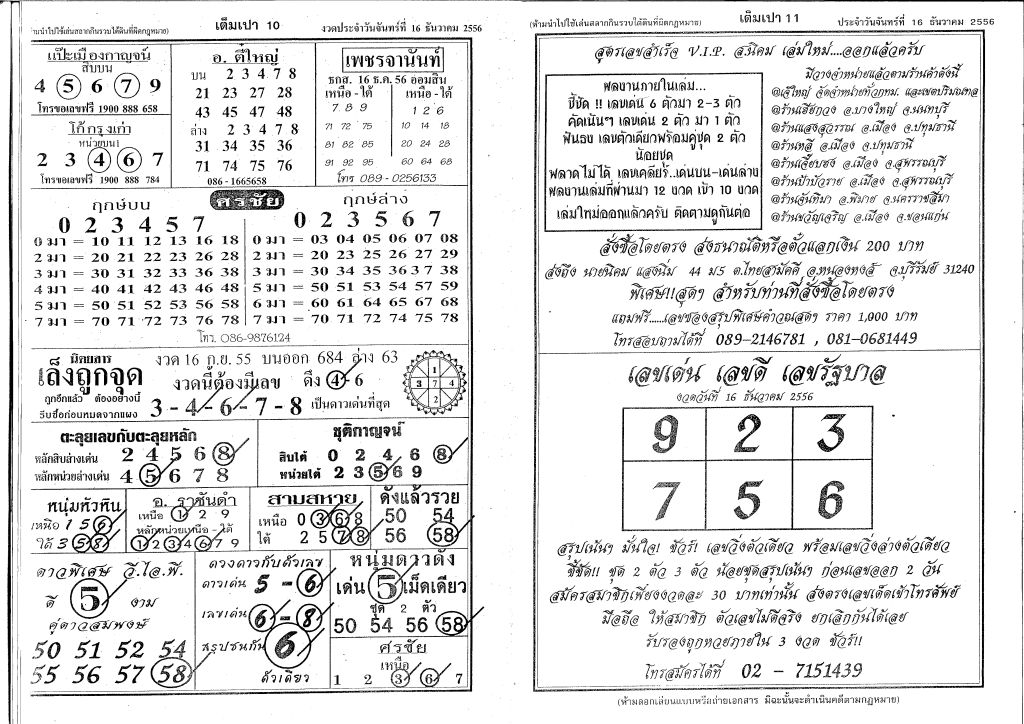 (ห้ามนำไปใช้เล่นสลากกินรวบใต้ดินที่ผิดกฎหมาย) เต็มเปา 10 งวดประจำวันจันทร์ที่ 16 ธันวาคม 2556
แป๊ะเมืองกาญจน์
สิบบน
4 5 6 7 9
โทรขอเลขฟรี 1900 888 658
โก้กรุงเก่า
หน่วยบน1
2 3 4 6 7
โทรขอเลขฟรี 1900 888 784
อ. ตี๋ใหญ่
บน 2 3 4 7 8
21 23 27 28
43 45 47 48
ล่าง 2 3 4 7 8
31 34 35 36
71 74 75 76
086-1665658
เพชรจานันท์
ธกส. 16 ธ.ค. 56 ออมสิน
เหนือ - ใต้ เหนือ - ใต้
7 8 9 1 2 6
71 72 75 10 14 18
81 82 85 20 24 28
91 92 95 60 64 68
โทร 089-0256133
ศรชัย
ฤกษ์บน ฤกษ์ล่าง
0 2 3 4 5 7 0 2 3 5 6 7
0 มา = 10 11 12 13 16 18 0 มา = 03 04 05 06 07 08
2 มา = 20 21 22 23 26 28 2 มา = 20 23 25 26 27 29
3 มา = 30 31 32 33 36 38 3 มา = 30 34 35 36 37 38
4 มา = 40 41 42 43 46 48 5 มา = 50 51 53 54 57 59
5 มา = 50 51 52 53 56 58 6 มา = 60 61 64 65 67 68
7 มา = 70 71 72 73 76 78 7 มา = 70 71 72 74 75 78
โทร. 086-9876124
นิตยสาร
เล็งถูกจุด
ถูกอีกแล้ว ต้องอย่างนี้
รีบซื้อก่อนหมดจากแผง
งวด 16 ก.ย. 55 บนออก 684 ล่าง 63
งวดนี้ต้องมีเลข ดึง 4 - 6
3 - 4 - 6 - 7 - 8 เป็นดาวเด่นที่สุด
1
3 7 4
2
ตะลุยเลขกับตะลุยหลัก
หลักสิบล่างเด่น 2 4 5 6 8
หลักหน่วยล่างเด่น 4 5 6 7 8
ชุติกาญจน์
สิบใต้ 0 2 4 6 8
หน่วยใต้ 2 3 5 6 9
หนุ่มหัวหิน
เหนือ 1 5 6
ใต้ 3 5 8
อ. ราชันดำ
เหนือ 1 2 9
หลักหน่วยเหนือ - ใต้
1 2 3 4 6 7 9
สามสหาย
เหนือ 0 3 6 8
ใต้ 2 5 7 8
ดังแล้วรวย
50 54
56 58
ดาวพิเศษ วี.ไอ.พี.
ดี 5 งาม
คู่ดาวสมพงษ์
50 51 52 54
55 56 57 58
ดวงดาวกับตัวเลข
ดาวเด่น 5 - 6
เลขเด่น 6 - 8
สรุปชนกัน 6
ตัวเดียว
หนุ่มดาวดัง
เด่น 5 เม็ดเดียว
ชุด 2 ตัว
50 54 56 58
ศรชัย
เหนือ
1 2 3 6 7
(ห้ามนำไปใช้เล่นสลากกินรวบใต้ดินที่ผิดกฎหมาย) เต็มเปา 11 ประจำวันจันทร์ที่ 16 ธันวาคม 2556
สูตรเลขสำเร็จ V.I.P. ส.นิคม เล่มใหม่....ออกแล้วครับ
ผลงานภายในเล่ม...
ชี้ชัด !! เลขเด่น 6 ตัวมา 2-3 ตัว
คัดเน้นๆ เลขเด่น 2 ตัว มา 1 ตัว
ฟันธง เลขตัวเดียวพร้อมคู่ชุด 2 ตัว
น้อยชุด
พลาดไม่ได้ เลขเคลียร์..เด่นบน-เด่นล่าง
ผลงานเล่มที่ผ่านมา 12 งวด เข้า 10 งวด
เล่มใหม่ออกแล้วครับ ติดตามดูกันต่อ
มีวางจำหน่ายแล้วตามร้านค้าดังนี้
@เจ๊ใหญ่ จัดจำหน่ายทั่วกทม. และเขตปริมณฑล
@ร้านเฮียกวง อ.บางใหญ่ จ.นนทบุรี
@ร้านแสงสุวรรณ อ.เมือง จ.ปทุมธานี
@ร้านหลี อ.เมือง จ.ปทุมธานี
@ร้านเจี๊ยบฮง อ.เมือง จ.สุพรรณบุรี
@ร้านป้าบัวราย อ.เมือง จ.สุพรรณบุรี
@ร้านจันทิมา อ.พิมาย จ.นครราชสีมา
@ร้านขวัญเจริญ อ.เมือง จ.ขอนแก่น
สั่งซื้อโดยตรง ส่งธนาณัติหรือตั๋วแลกเงิน 200 บาท
ส่งถึง นายนิคม แสงนิ่ม 44 ม.5 ต.ไทยสามัคคี อ.หนองหงส์ จ.บุรีรัมย์ 31240
พิเศษ!!สุดๆ สำหรับท่านที่สั่งซื้อโดยตรง
แถมฟรี......เลขซองสรุปพิเศษคำนวณสดๆ ราคา 1,000 บาท
โทรสอบถามได้ที่ 089-2146781 , 081-0681449
เลขเด่น เลขดี เลขรัฐบาล
งวดวันที่ 16 ธันวาคม 2556
9 2 3
7 5 6
สรุปเน้นๆ มั่นใจ! ชัวร์! เลขวิ่งตัวเดียว พร้อมเลขวิ่งล่างตัวเดียว
ชี้ชัด!! ชุด 2 ตัว 3 ตัว น้อยชุดสรุปเน้นๆ ก่อนเลขออก 2 วัน
สมัครสมาชิกเพียงงวดละ 30 บาทเท่านั้น ส่งตรงเลขเด็ดเข้าโทรศัพย์
มือถือ ให้สมาชิก ตัวเลขไม่ดีจริง ยกเลิกกันได้เลย
รับรองถูกหวยภายใน 3 งวด ชัวร์!!
โทรสมัครได้ที่ 02 - 7151439
(ห้ามลอกเลียนแบบหรือถ่ายเอกสาร มิฉะนั้นจะดำเนินคดีตามกฎหมาย)